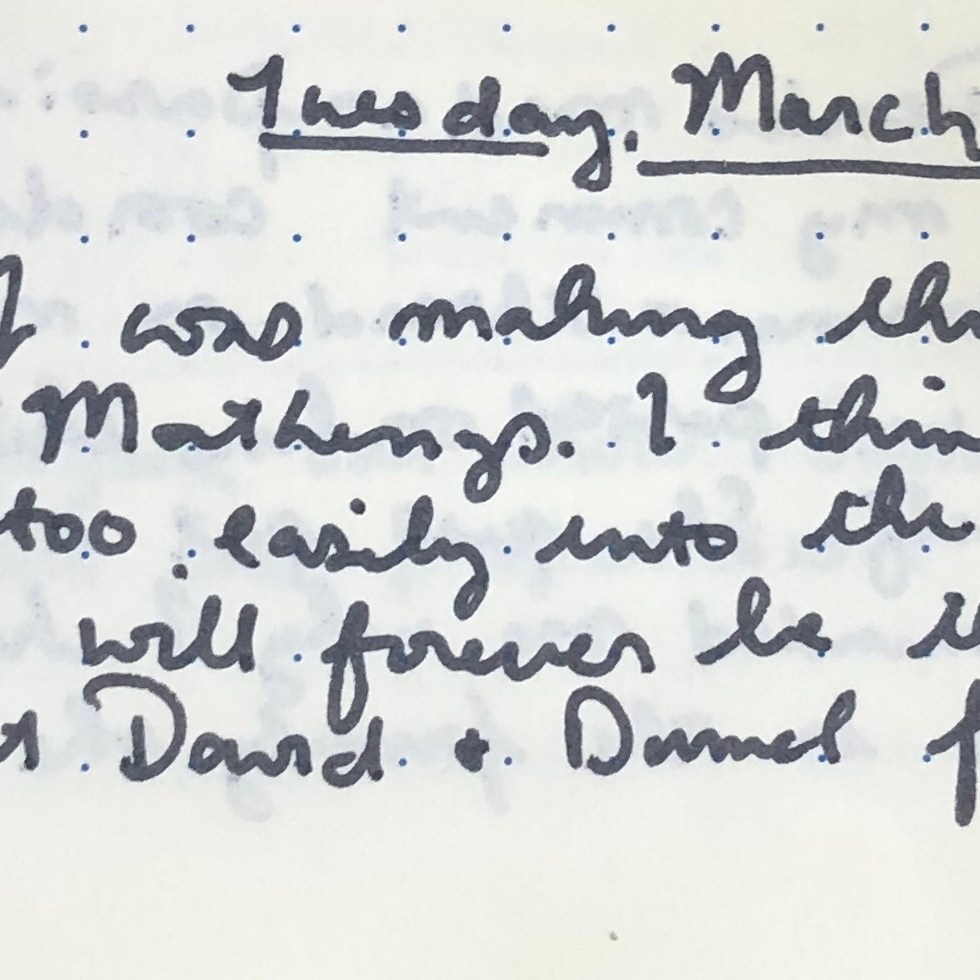 Tuesday, March
I was making th
Mathengs. I thin
too easily into th
will forever be i
David + Daniel f